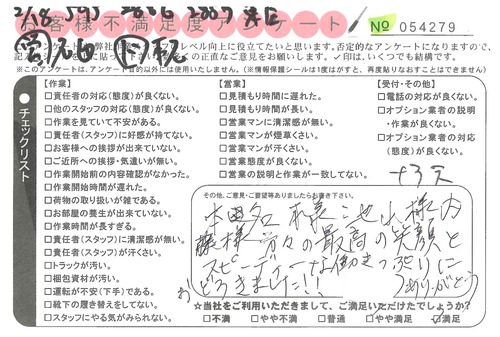 お客様不満足度アンケート
No 054279
アンケートは弊社
レベル向上に役立てたいと思います。否定的なアンケートになりますので、
の正直なご意見をお願いします。✓印は、いくつでも結構です。
※このアンケートは、アンケート目的以外には使用いたしません。(※情報保護シールは1度はがすと、再度貼りなおすことはできません)
チェックリスト
【作業】
□責任者の対応(態度)が良くない。
□他のスタッフの対応(態度)が良くない。
□作業を見ていて不安がある。
□責任者(スタッフ)に好感が持てない。
□お客様への挨拶が出来ていない。
□ご近所への挨拶・気遣いが無い。
□作業開始前の内容確認がなかった。
□作業開始時間が遅れた。
□荷物の取り扱いが雑である。
□お部屋の養生が出来ていない。
□作業時間が長すぎる。
□責任者(スタッフ)に清潔感が無い。
□責任者(スタッフ)が汗くさい。
□トラックが汚い。
□梱包資材が汚い。
□運転が不安(下手)である。
□靴下の履き替えをしてない。
□スタッフにやる気がみられない。
【営業】
□見積もり時間に遅れた。
□見積もり時間が長い。
□営業マンに清潔感が無い。
□営業マンが煙草くさい。
□営業マンが汗くさい。
□営業態度が良くない。
□営業の説明と作業が一致してない。
【受付・その他】
□電話の対応が良くない。
□オプション業者の説明
・作業が良くない。
□オプション業者の対応
(態度)が良くない。
その他、ご意見・ご要望等ありましたらお書き下さい。
様 池山様 内
藤様 の最高の笑顔と
スピーディーな働きっぷりに
おどろきました!!
ありがとう
☆当社をご利用いただきまして、ご満足いただけたでしょうか?
□不満 □やや不満 □普通 □やや満足 □満足